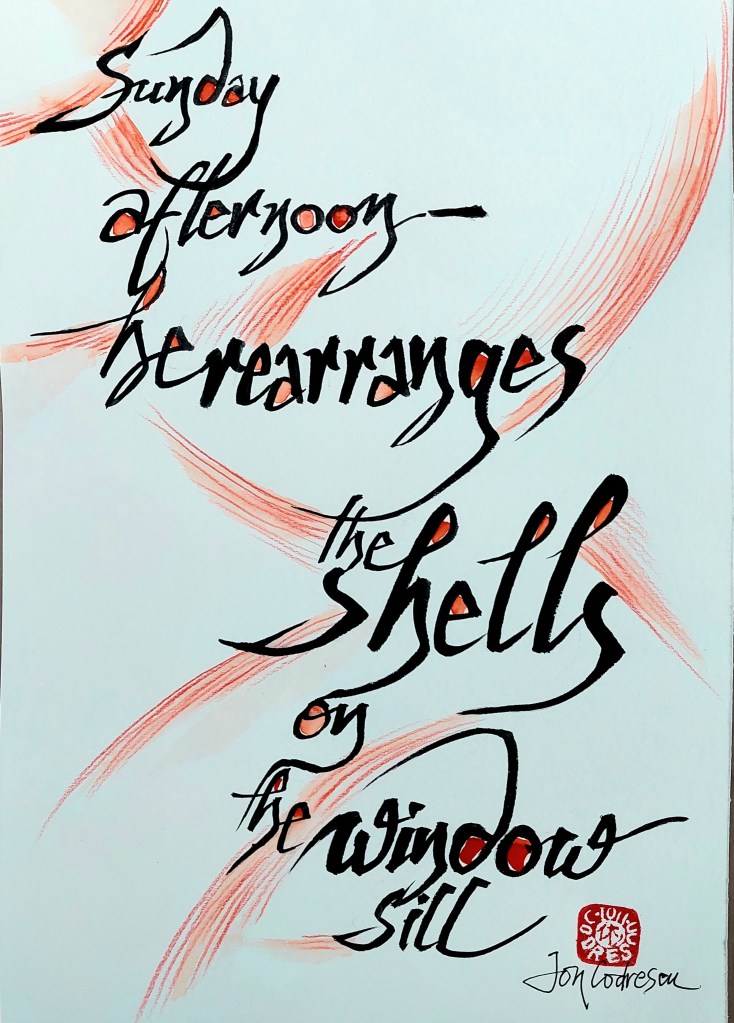 Sunday
afternoon—
he rearranges
the
shells
on
the window
sill
Ion Codrescu